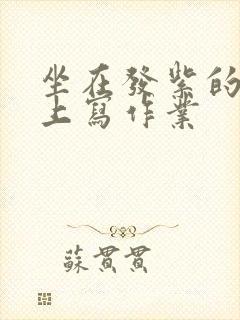 坐在發紫的
上寫作業
蘇貫貫